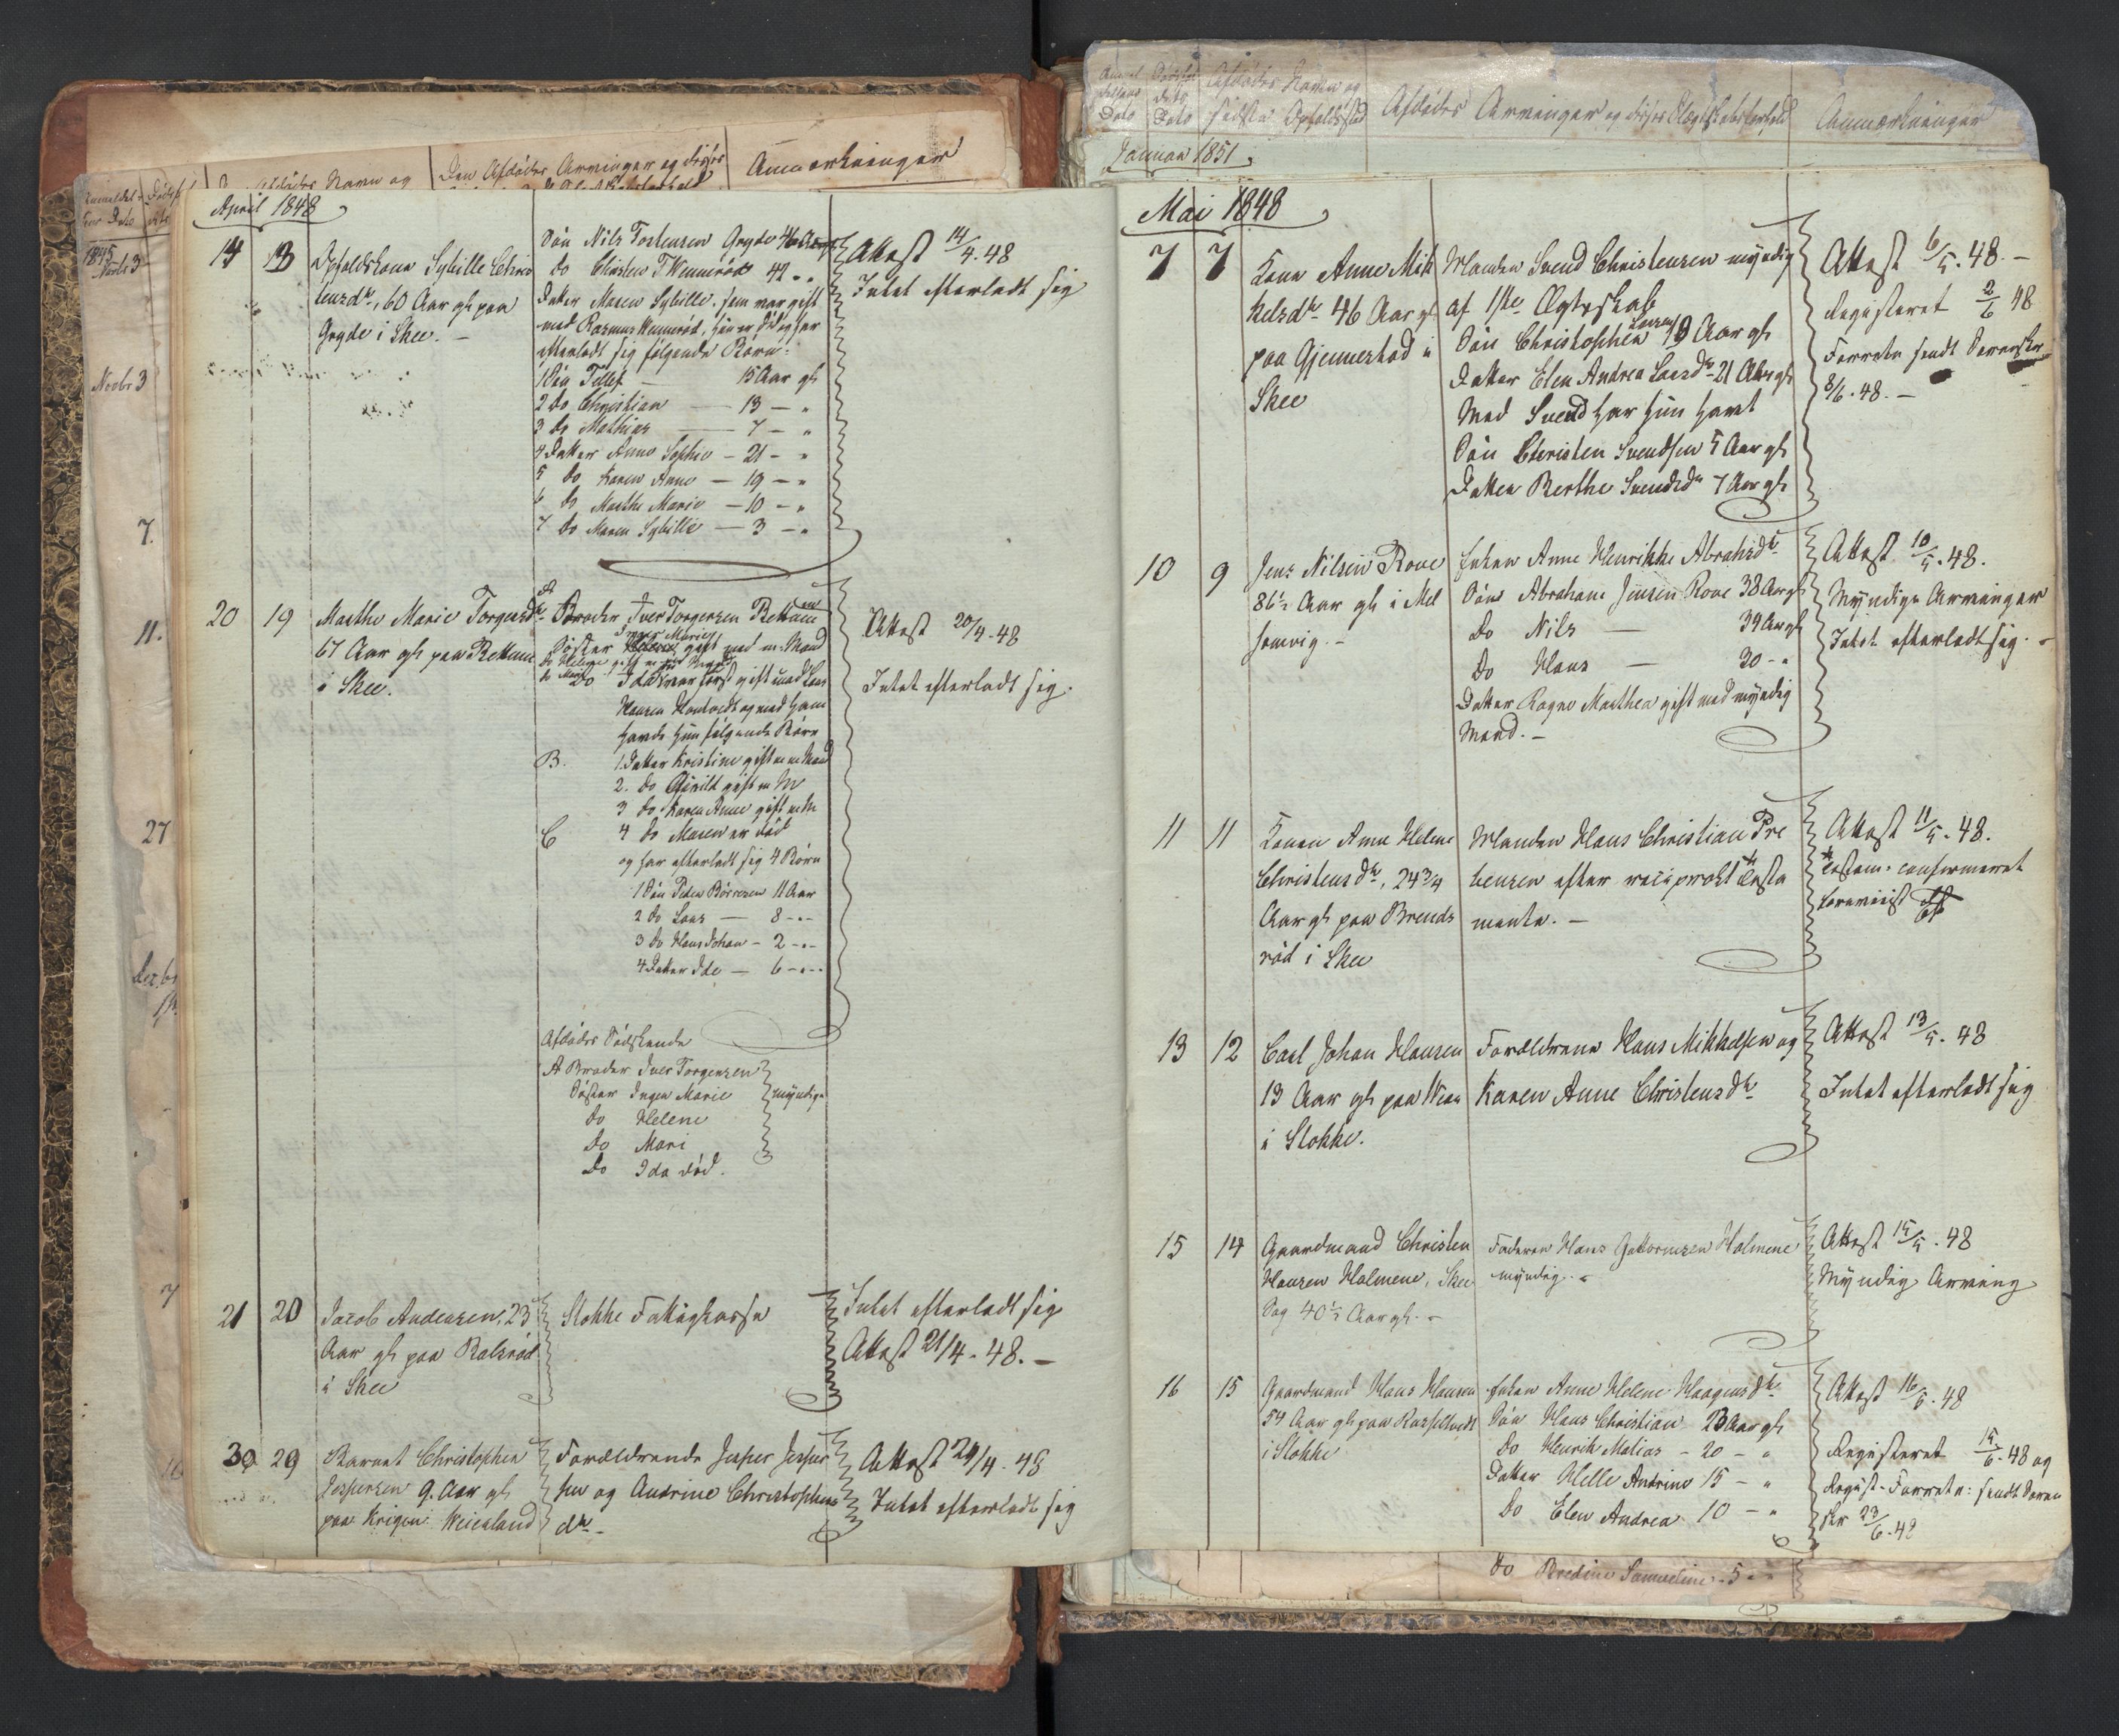 Den Afdødes Arvinger og disses
Anmærkninger
Afdødes Navn og
April 1848
14 13 Opholdskone Sybille Chris
tensdtr, 60 Aar gl paa
Gryde i Skee. –
Søn Nils Torkensen Gryde 46 Aar gl
do Christen T Wennerød 42 - "
Datter Maren Sybille, som var gift
med Rasmus Wennerød, hun er død og har
efterladt sig følgende Børn:
1 Søn Tellef — 15 Aar gl
2 do Christian — 13 — "
3 do Mathias — 7 — "
4 Datter Anne Sophie — 21 — "
5 do Karen Anne — 19 — "
6 do Marthe Marie — 10 — "
7 do Maren Sybille — 3 — "
Attest 14/4. 48
Intet efterladt sig
20 19 Marthe Marie Torgersdtr
67 Aar gl paa Bettum
i Skee.
A
Broder Iver Torgersen Bettum
Inger Marie
Søster gift med m: Mand
do Helene gift m
do Mari
Do Ida var først gift med Lars
Hansen Hontvedt og med ham
havde hun følgende Børn
B. 1. Datter Kristine gift m m Mand
2. do gift m M
3 do Karen Anne gift m M
C 4 do Maren er død
og har efterladt sig 4 Børn
1 Søn Peder Børresen 11 Aar
2 do Lars — 8 - " -
3 do Hans Johan - 2 - " -
4 Datter Ide — 6 - " -
Attest 20/4. 48
Intet efterladt sig.
Afdødes Sødskende
A Broder Iver Torgersen
Søster Inger Marie myndige
do Helene
Do Mari
Do Ida død.
21 20 Jacob Andersen, 23
Aar gl paa Rakerød
i Skee
Stokke Fattigkasse
Intet efterladt sig
Attest 21/4. 48. –
30 29 Barnet Christopher
Jespersen 9. Aar gl
paa Krigen Weierland
Forældrende Jesper Jesper
sen og Andrine Christophers
dtr –
Attest 29/4. 48
Intet efterladt sig
1845
Novbr 3
Novbr 3
7.
11.
27
7
Afdødes Navn og
sidste Opholdssted
Afdødes Arvinger og disses Slægtskabsforhold
Anmærkninger
Januar 1851
Mai 1848
7 7 Kone Anne Mik
kelsdtr 46 Aar gl
paa Gjennestad i
Skee
Manden Svend Christensen myndig
af 1ste Ægteskab
Søn Christopher Larsen 19 Aar gl
Datter Elen Andrea Larsdtr 21 Aar gl
Med Svend har hun havt
Søn Christen Svendsen 5 Aar gl
Datter Berthe Svendsdtr 7 Aar gl
Attest 6/5. 48. –
Registeret 2/6 48
Forretn sendt Sorenskr
8/6. 48. –
10 9 Jens Nilsen Rove
86½ Aar gl i Mel
somvig. –
Enken Anne Henrikke Abrahsdtr
Søn Abraham Jensen Rove 38 Aar gl
do Nils — 34 Aar gl
do Hans — 30 - "
Datter Ragne Marthea gift med myndig
Mand. –
Attest 10/5. 48.
Myndige Arvinger
Intet efterladt sig. –
11 11 Konen Anne Helene
Christensdtr, 24¾
Aar gl paa Brends
rød i Skee
Manden Hans Christian Pre
bensen efter reciprokt Testa
mente. –
Attest 11/5. 48.
Testam: confirmeret
13 12 Carl Johan Hansen
13 Aar gl paa Wear
i Stokke.
Forældrene Hans Mikkelsen og
Karen Anne Christensdtr
Attest 13/5. 48
Intet efterladt sig
15 14 Gaardmand Christen
Hansen Holmene, Skee
Sog 40½ Aar gl. –
Faderen Hans Guttormsen Holmene
myndig. –
Attest 15/5. 48
Myndig Arving
16 15 Gaardmand Hans Hansen
54 Aar gl paa
i Stokke
Enken Anne Helene Haagensdtr
Søn Hans Christian 23 Aar gl
do Henrik Matias — 20 — "
Datter Helle Andrine 15 — "
do Elen Andrea 10 — "
Attest 16/5. 48
Registeret 15/6. 48 og
Regist-Forretn: sendt Soren
skr 23/6. 48
do Bredine Samueline - 5 -